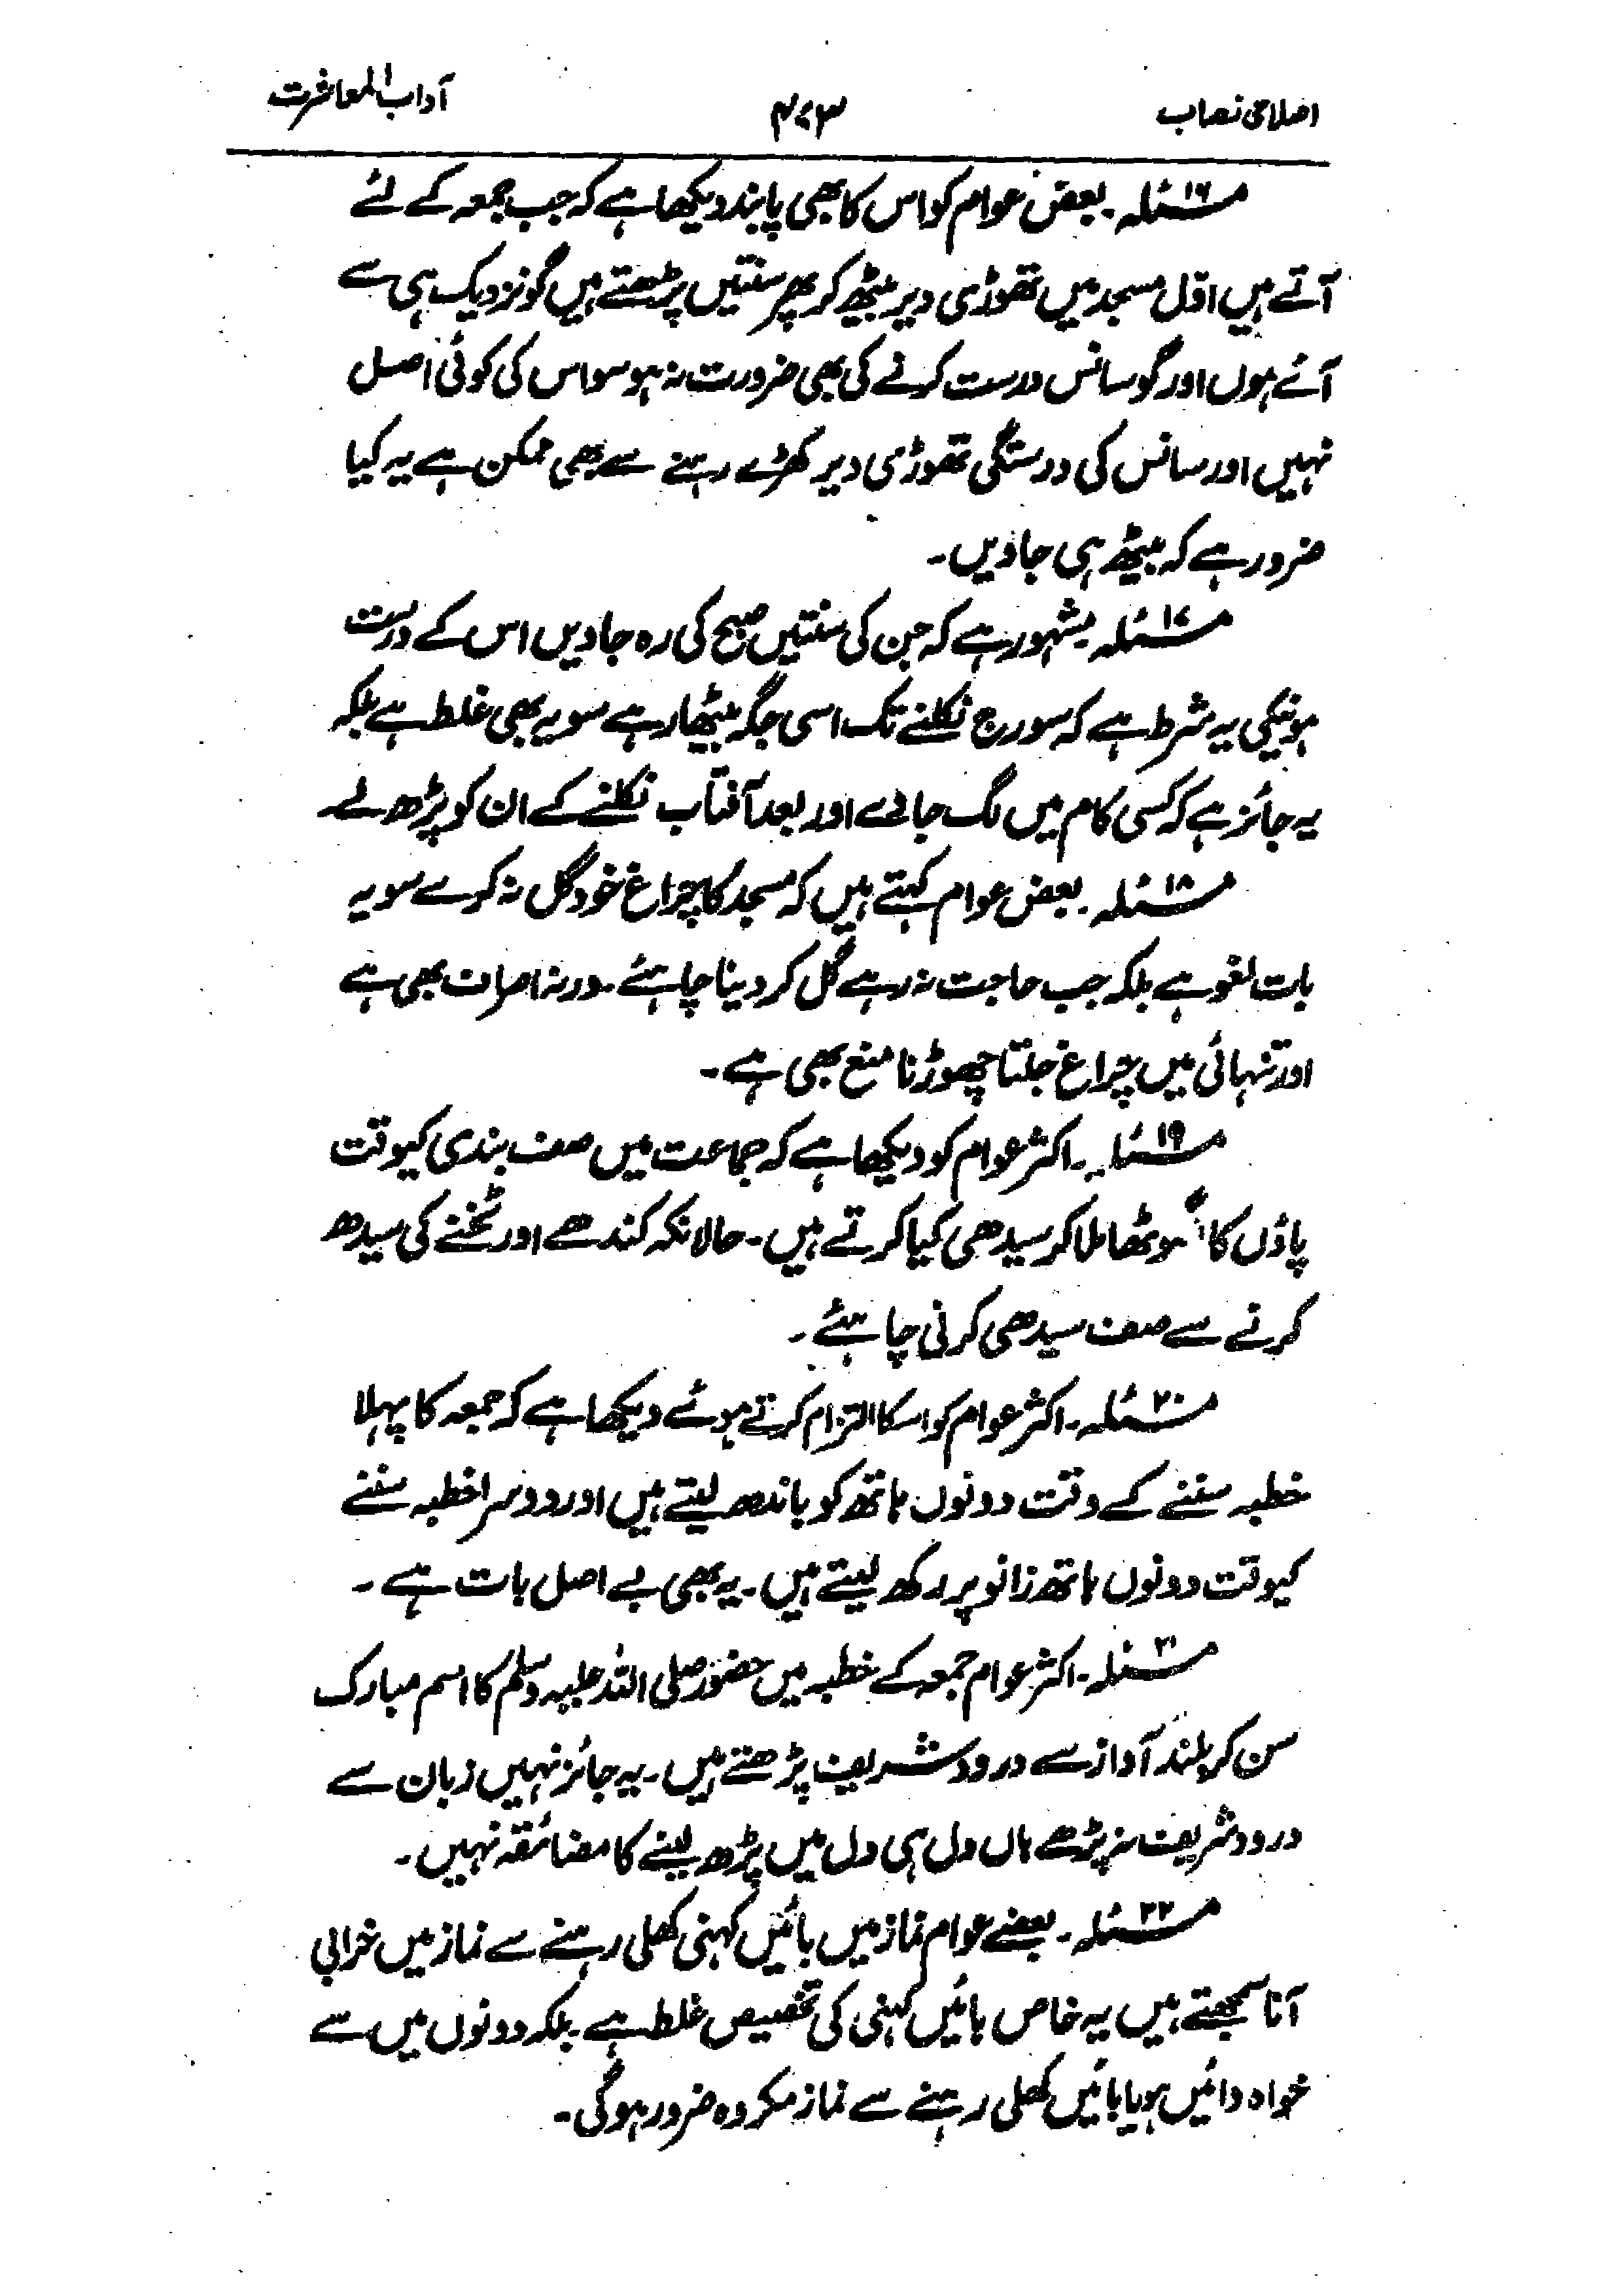 اصلاحی نصاب ۴۷۳ آداب المعاشرت
مسئلہ ۱۶۔ بعض عوام کو اس کا بھی پابند دیکھا ہے کہ جب جمعہ کے لئے
آتے ہیں اول مسجد میں تھوڑی دیر بیٹھ کر پھر سنتیں پڑھتے ہیں گو نزدیک ہی سے
آئے ہوں اور گو سانس درست کرنے کی بھی ضرورت نہ ہو سو اس کی کوئی اصل
نہیں اور سانس کی درستگی تھوڑی دیر کھڑے رہنے سے بھی ممکن ہے یہ کیا
ضرور ہے کہ بیٹھ ہی جاویں۔
مسئلہ ۱۷۔ مشہور ہے کہ جن کی سنتیں صبح کی رہ جاویں اس کے درست
ہونیکی یہ شرط ہے کہ سورج نکلنے تک اسی جگہ بیٹھا رہے سو یہ بھی غلط ہے بلکہ
یہ جائز ہے کہ کسی کام میں لگ جائے اور بعد آفتاب نکلنے کے ان کو پڑھ لے۔
مسئلہ ۱۸۔ بعض عوام کہتے ہیں کہ مسجد کا چراغ خود گل نہ کرے سو یہ
بات لغو ہے بلکہ جب حاجت نہ رہے گل کر دینا چاہئے۔ ورنہ اصراف بھی ہے
اور تنہائی میں چراغ جلتا چھوڑنا منع بھی ہے۔
مسئلہ ۱۹۔ اکثر عوام کو دیکھا ہے کہ جماعت میں صف بندی کیوقت
پاؤں کا انگوٹھا ملا کر سیدھی کیا کرتے ہیں۔ حالانکہ کندھے اور ٹخنے کی سیدھ
کرنے سے صف سیدھی کرنی چاہئے۔
مسئلہ ۲۰۔ اکثر عوام کو اسکا التزام کرتے ہوئے دیکھا ہے کہ جمعہ کا پہلا
خطبہ سننے کے وقت دونوں ہاتھ کو باندھ لیتے ہیں اور دوسرا خطبہ سننے
کیوقت دونوں ہاتھ زانو پر رکھ لیتے ہیں۔ یہ بھی بے اصل بات ہے۔
مسئلہ ۲۱۔ اکثر عوام جمعہ کے خطبہ میں حضور صلی اللہ علیہ وسلم کا اسم مبارک
سن کر بلند آواز سے درود شریف پڑھتے ہیں۔ یہ جائز نہیں زبان سے
درود شریف نہ پڑھے ہاں دل ہی دل میں پڑھ لینے کا مضائقہ نہیں۔
مسئلہ ۲۲۔ بعضے عوام نماز میں بائیں کہنی کھلی رہنے سے نماز میں خرابی
آنا سمجھتے ہیں یہ خاص بائیں کہنی کی تخصیص غلط ہے۔ بلکہ دونوں میں سے
خواہ دائیں ہو یا بائیں کھلی رہنے سے نماز مکروہ ضرور ہوگی۔